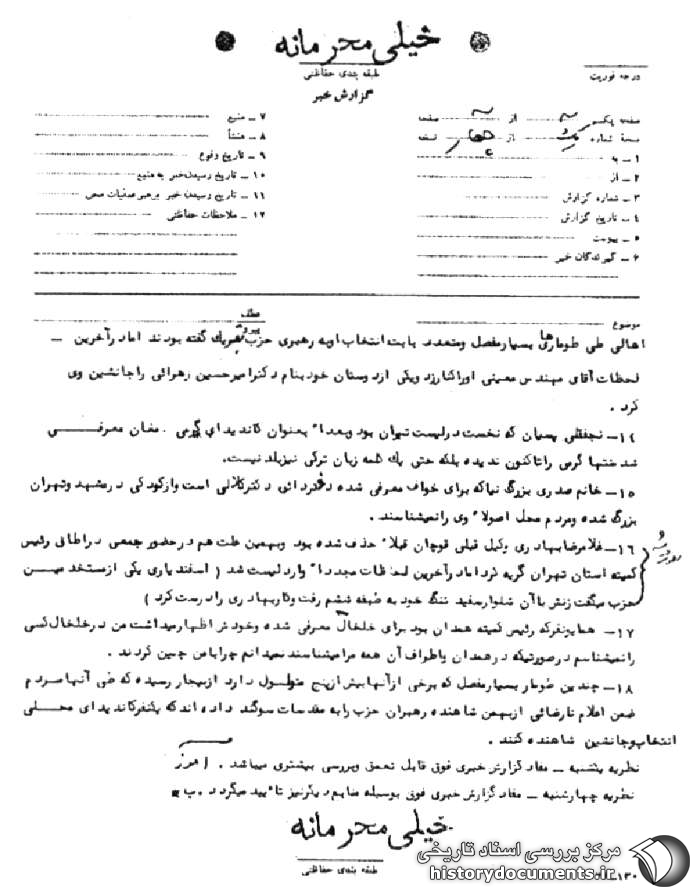 خیلی محرمانه
طبقه بندی حفاظتی
درجه فوریت
گزارش خبر
صفحه یکم از صفحه
نسخه شماره از چهار نسخه
۱ـ به
۲ـ از
۳ـ شماره گزارش
۴ـ تاریخ گزارش
۵ـ پیوست
۶ـ گیرندگان خبر
۷ـ منبع
۸ـ منشأ
۹ـ تاریخ وقوع
۱۰ـ تاریخ رسیدن خبر به منبع
۱۱ـ تاریخ رسیدن خبر به رهبر عملیات محل
۱۲ـ ملاحظات حفاظتی
موضوع
عطف
پیرو
اهالی طی طومارهای بسیار مفصل و متعدد بابت انتخاب او به رهبری حزب تبریک گفته بودند اما در آخرین ـ
لحظات آقای مهندس معینی او را کنار زد و یکی از دوستان خود بنام دکتر امیرحسین زهرائی را جانشین وی
کرد .
۱۴ـ نجفقلی پسیان که نخست در لیست تهران بود و بعدا" بعنوان کاندیدای گرمی . مغان معرفـــی
شد نه تنها گرمی را تاکنون ندیده بلکه حتی یک کلمه زبان ترکی نیز بلد نیست.
۱۵ـ خانم صدری بزرگ نیا که برای خواف معرفی شده دختر دائی دکتر کلالی است و از کودکی در مشهد و تهران
بزرگ شده و مردم محل اصولا" وی را نمیشناسند .
۱۶ـ غلامرضا بهادری وکیل قبلی قوچان قبلا" حذف شده بود و بهمین علت هم در حضور جمعی در اطاق رئیس
کمیته استان تهران گریه کرد اما در آخرین لحظات مجددا" وارد لیست شد ( اسفندیاری یکی از مستخدمیـــن
حزب میگفت زنش با آن شلوار سفید تنگ خود به طبقه ششم رفت و کار بهادری را درست کرد )
۱۷ـ همایونفر که رئیس کمیته همدان بود برای خلخال معرفی شده و خودش اظهار میداشت من در خلخال کسی
را نمیشناسم در صورتیکه در همدان و اطراف آن همه مرا میشناسند نمیدانم چرا با من چنین کردند .
۱۸ـ چندین طومار بسیار مفصل که برخی از آنها بیش از پنج متر طول دارد از بیجار رسیده که طی آنها مردم
ضمن اعلام نارضائی از بهمن شاهنده رهبران حزب را به مقدسات سوگند داده اند که یکنفر کاندیدای محـــلی
انتخاب و جانشین شاهنده کنند .
نظریه یکشنبه ـ مفاد گزارش خبری فوق قابل تعمق و بررسی بیشتری میباشد .
نظریه چهارشنبه ـ مفاد گزارش خبری فوق بوسیله منابع دیگر نیز تائید میگردد .
خیلی محرمانه
طبقه بندی حفاظتی
مرکز بررسی اسناد تاریخی
historydocuments.ir